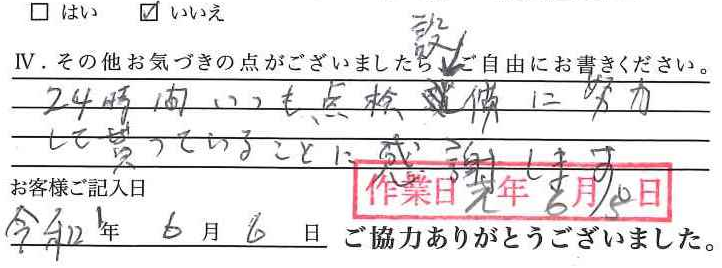 □ はい ☑ いいえ
Ⅳ．その他お気づきの点がございましたら、ご自由にお書きください。
24時間いつも点検設備に努力
して貰っていることに感謝します
お客様ご記入日
作業日 元年 6月 5日
令和1年 6月 6日 ご協力ありがとうございました。